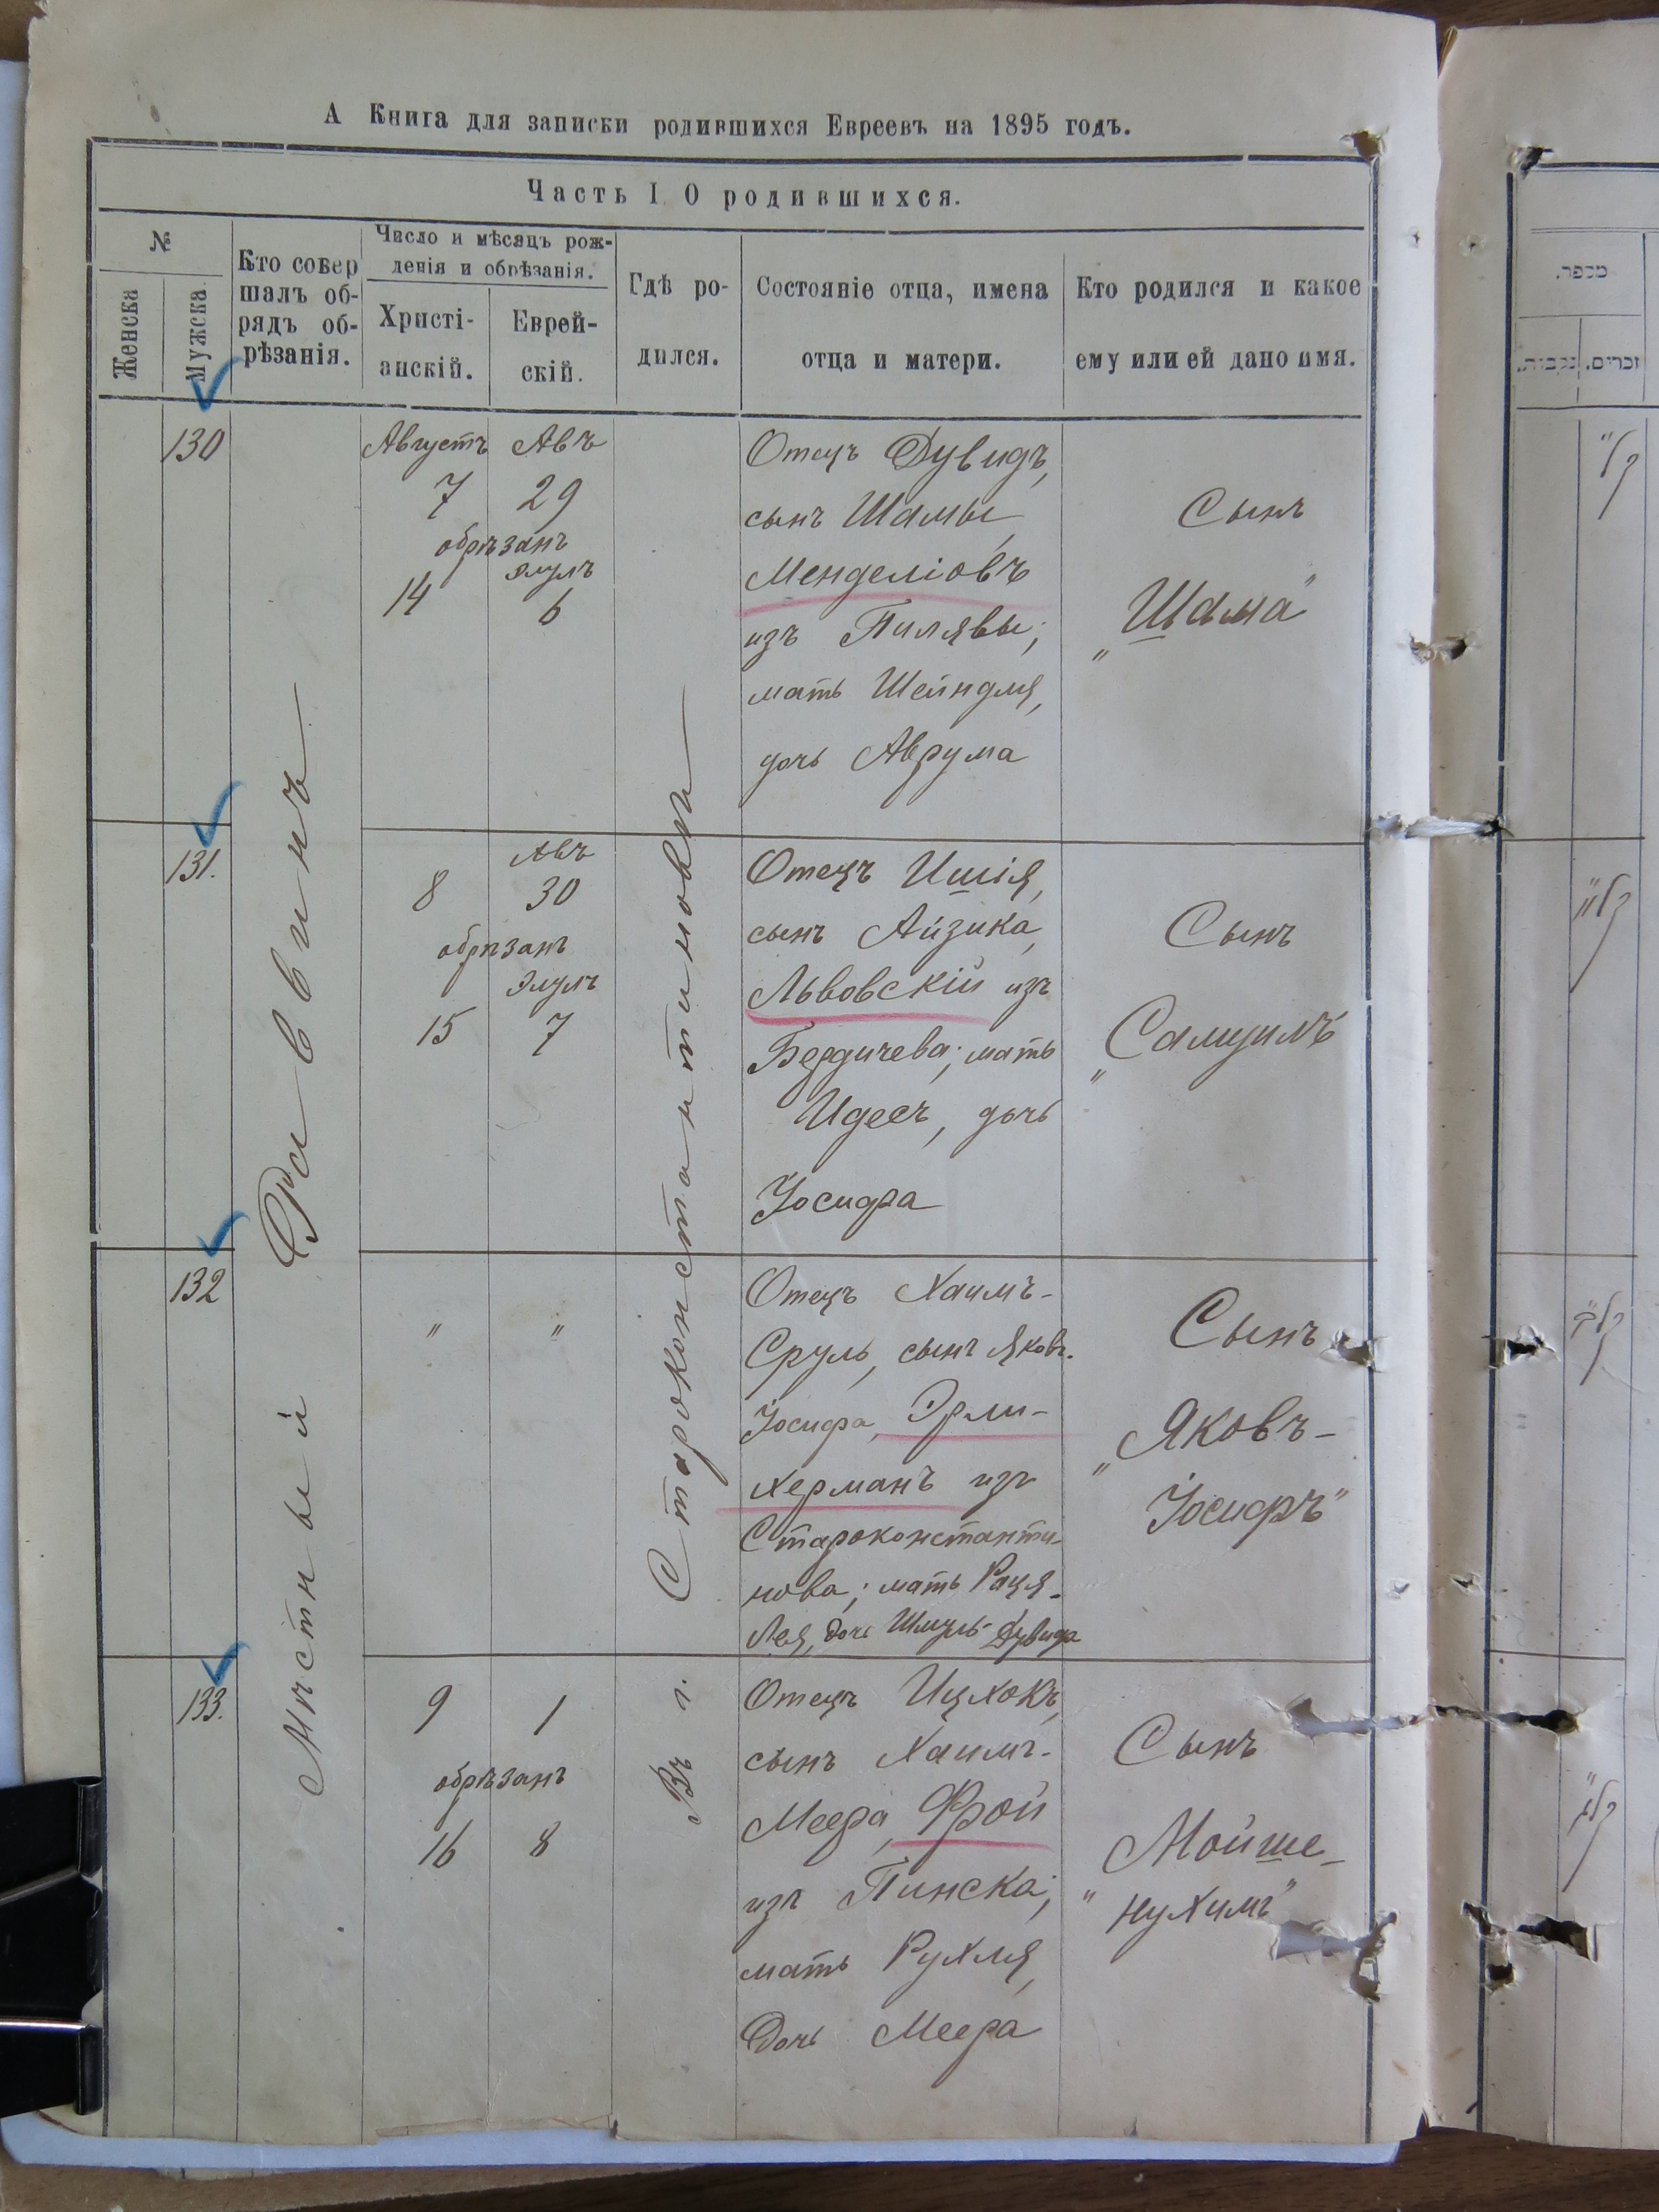 А Книга для записки родившихся Евреевъ на 1895 годъ.
Часть I О родившихся.
№
Женска
Мужска.
Кто совер
шалъ об-
рядъ об-
рѣзанія.
Число и мѣсяцъ рож-
денія и обрѣзанія.
Христі-
анскій.
Еврей-
скій.
Гдѣ ро-
дился.
Состояніе отца, имена
отца и матери.
Кто родился и какое
ему или ей дано имя.
Мѣстный Раввинъ
Въ г. Староконстантиновѣ
130
Августъ Авъ
7 29
обрѣзанъ
Элулъ
14 6
Отецъ Дувидъ,
сынъ Шамы,
Менделіовъ
изъ Пилявы;
мать Шейндля,
дочь Аврума
Сынъ
„Шама"
131.
Авъ
8 30
обрѣзанъ
Элулъ
15 7
Отецъ Ишія,
сынъ Айзика,
Львовскій изъ
Бердичева; мать
Идесъ, дочь
Іосифа
Сынъ
„Самуилъ"
132
" "
Отецъ Хаимъ-
Сруль, сынъ Яковъ-
Іосифа, Эрли-
херманъ изъ
Староконстанти-
нова; мать Рація-
Лея, дочь Шмуль-Дувида
Сынъ
„Яковъ-
Іосифъ"
133.
9 1
обрѣзанъ
16 8
Отецъ Ицхокъ,
сынъ Хаимъ-
Меера, Фрой
изъ Пинска;
мать Рухля,
дочь Меера
Сынъ
„Мойше-
Нухимъ"
מספר.
זכרים.
נקבות.
ק"ל
קל"א
קל"ב
קל"ג